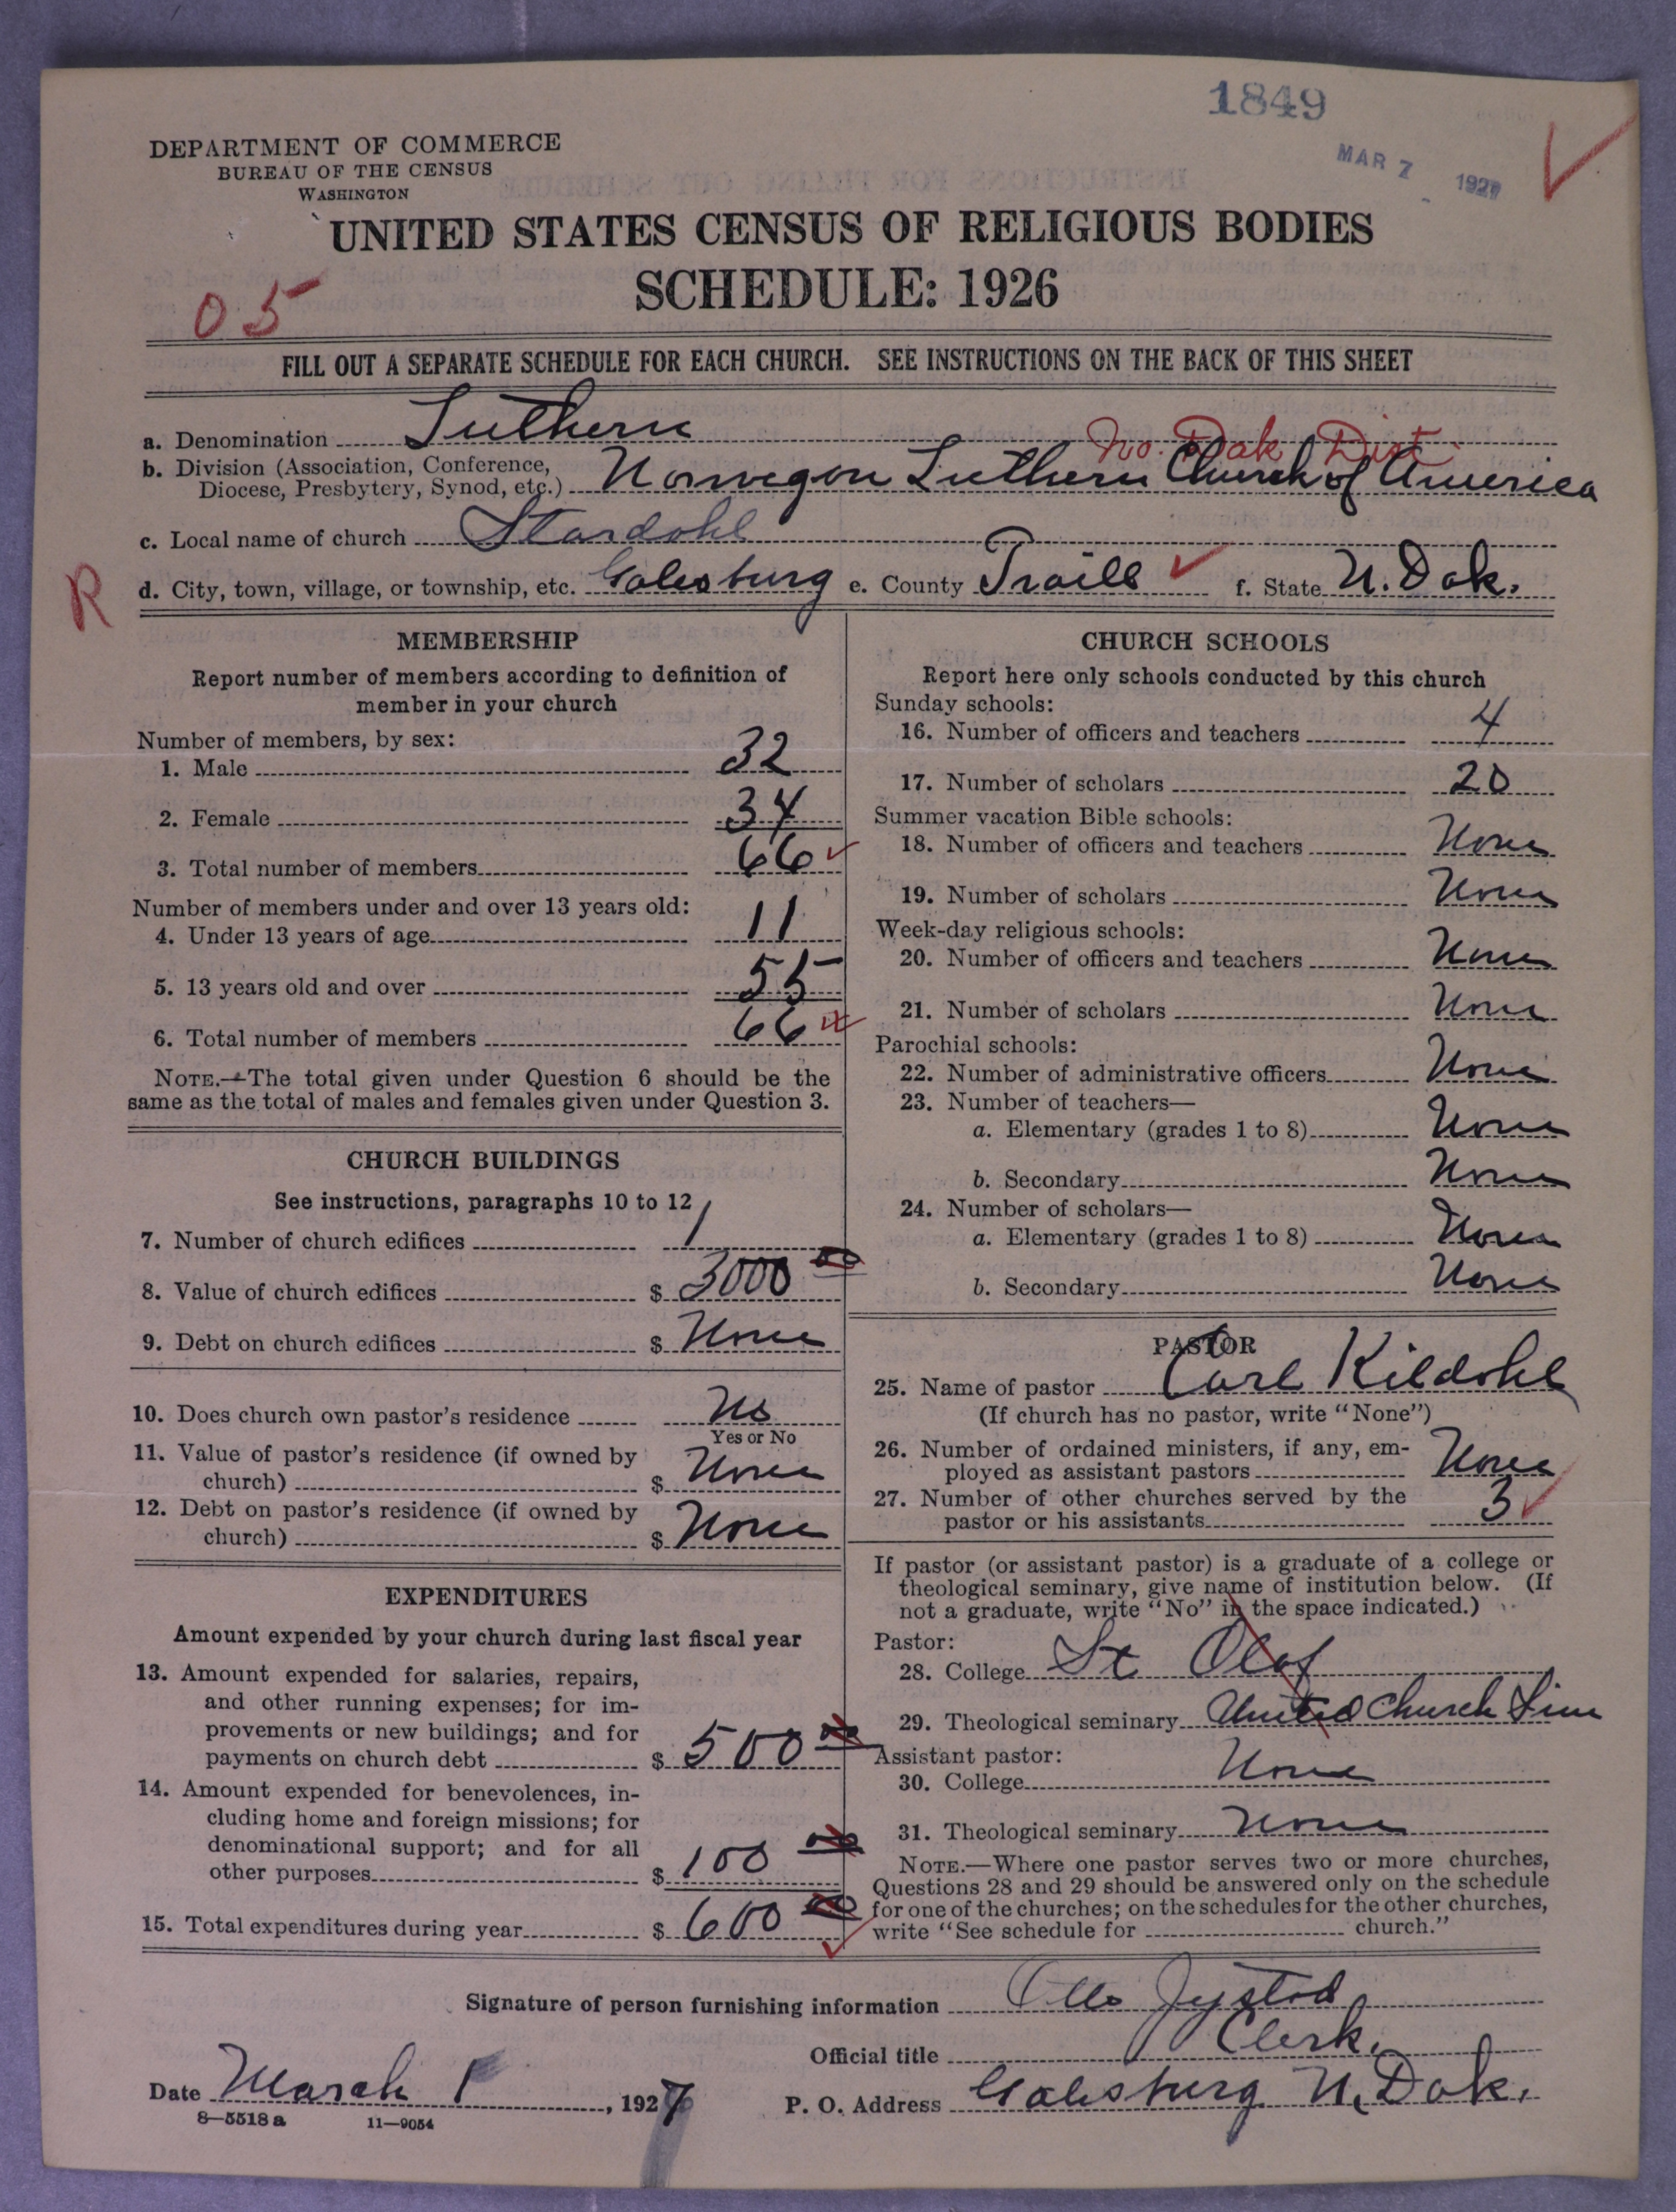 1849
MAR 7 1927
DEPARTMENT OF COMMERCE
BUREAU OF THE CENSUS
WASHINGTON
UNITED STATES CENSUS OF RELIGIOUS BODIES
SCHEDULE: 1926
05
FILL OUT A SEPARATE SCHEDULE FOR EACH CHURCH. SEE INSTRUCTIONS ON THE BACK OF THIS SHEET
a. Denomination Luthern
No. Dak Dist.
b. Division (Association, Conference,
Diocese, Presbytery, Synod, etc.) Norwegon Luthern Church of America
c. Local name of church Stardohl
R
d. City, town, village, or township, etc. Galesburg e. County Traill f. State N. Dak.
MEMBERSHIP
Report number of members according to definition of
member in your church
Number of members, by sex:
1. Male 32
2. Female 34
3. Total number of members 66
Number of members under and over 13 years old:
4. Under 13 years of age 11
5. 13 years old and over 55
6. Total number of members 66
NOTE.—The total given under Question 6 should be the
same as the total of males and females given under Question 3.
CHURCH BUILDINGS
See instructions, paragraphs 10 to 12
7. Number of church edifices 1
8. Value of church edifices $ 3000 00
9. Debt on church edifices $ None
10. Does church own pastor's residence No
Yes or No
11. Value of pastor's residence (if owned by
church) $ None
12. Debt on pastor's residence (if owned by
church) $ None
EXPENDITURES
Amount expended by your church during last fiscal year
13. Amount expended for salaries, repairs,
and other running expenses; for im-
provements or new buildings; and for
payments on church debt $ 500 00
14. Amount expended for benevolences, in-
cluding home and foreign missions; for
denominational support; and for all
other purposes $ 100 00
15. Total expenditures during year $ 600 00
CHURCH SCHOOLS
Report here only schools conducted by this church
Sunday schools:
16. Number of officers and teachers 4
17. Number of scholars 20
Summer vacation Bible schools:
18. Number of officers and teachers None
19. Number of scholars None
Week-day religious schools:
20. Number of officers and teachers None
21. Number of scholars None
Parochial schools:
22. Number of administrative officers None
23. Number of teachers—
a. Elementary (grades 1 to 8) None
b. Secondary None
24. Number of scholars—
a. Elementary (grades 1 to 8) None
b. Secondary None
PASTOR
25. Name of pastor Carl Kildohl
(If church has no pastor, write "None")
26. Number of ordained ministers, if any, em-
ployed as assistant pastors None
27. Number of other churches served by the
pastor or his assistants 3
If pastor (or assistant pastor) is a graduate of a college or
theological seminary, give name of institution below. (If
not a graduate, write "No" in the space indicated.)
Pastor:
28. College St Olof
29. Theological seminary United Church Sim
Assistant pastor:
30. College None
31. Theological seminary None
NOTE.—Where one pastor serves two or more churches,
Questions 28 and 29 should be answered only on the schedule
for one of the churches; on the schedules for the other churches,
write "See schedule for church."
Signature of person furnishing information Otto
Official title Clerk.
Date March 1, 1927 P. O. Address Galesburg N. Dak.
8—5518 a 11—9054